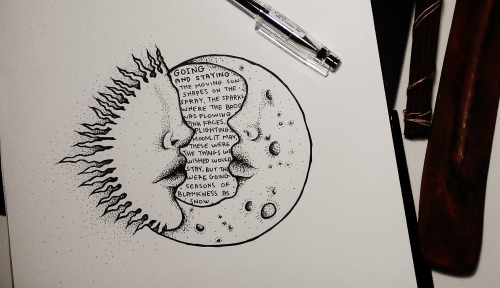 GOING
AND STAYING
THE MOVING SUN
SHAPES ON THE
SPRAY, THE SPARKL
WHERE THE BROO
WAS FLOWING
PINK FACES,
PLIGHTING
MOONLIT MAY,
THESE WERE
THE THINGS WE
WISHED WOULD
STAY, BUT THE
WERE GOING
SEASONS OF
BLANKNESS AS
SNOW